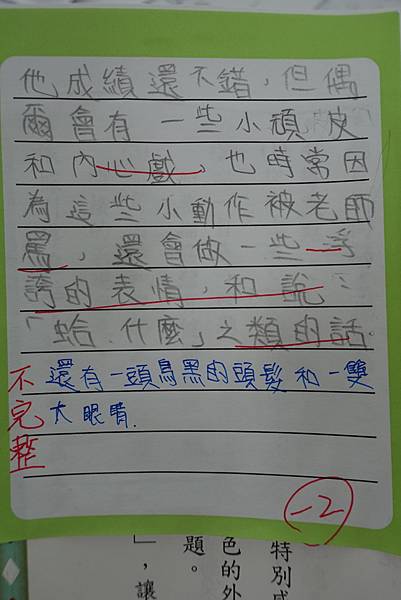 他成績還不錯，但偶
爾會有一些小頑皮
和內心戲，也時常因
為這些小動作被老師
罵，還會做一些浮
誇的表情，和說：
「蛤.什麼」之類的話.
還有一頭鳥黑的頭髮和一雙
大眼睛.
不完整
-2
特別成
色的外
題。
」，讓